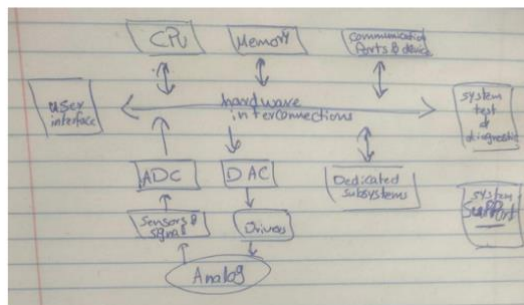 CPU
Memory
Communication
Ports & device
user
interface
hardware
interconnections
system
test
&
diagnostic
ADC
DAC
Dedicated
subsystems
Sensors &
signal
Drivers
system
Support
Analog